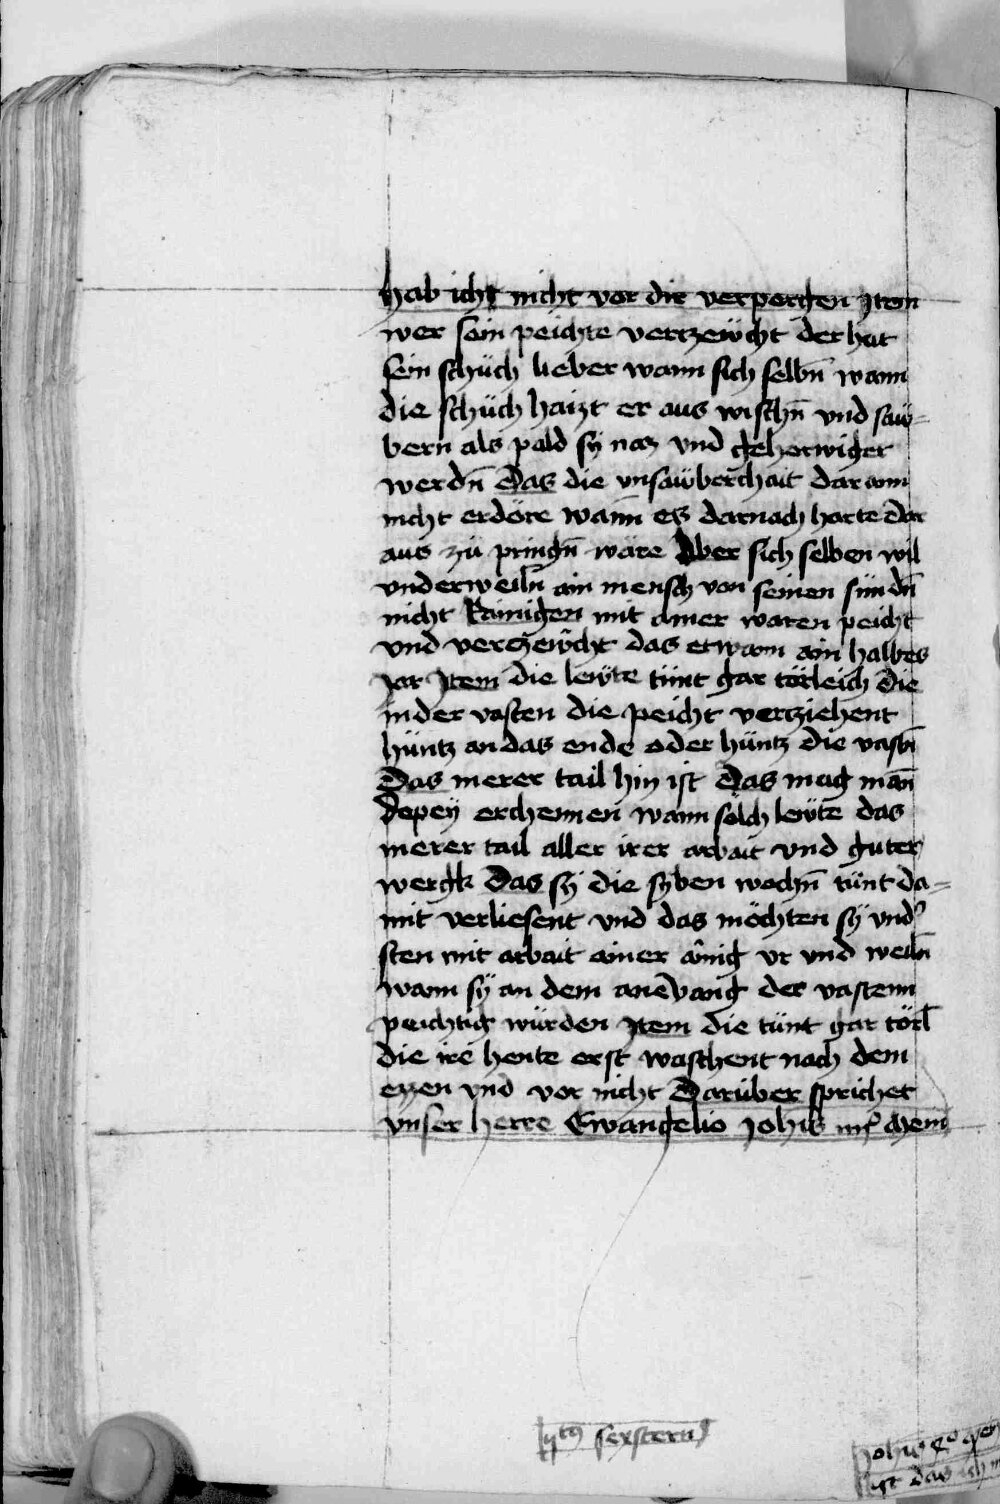 hab ich nicht vor dir verporgen Item
wer sein peichte vertzewcht der hat
sein schüch lieber wann sich selbn̄ wann
die schüch haizt er aus wischn̄ vnd saw-
bern als pald sÿ naz vnd
werdn̄ Das die vnsawberchait dar ann
nicht erdöre wann es darnach harte dar
aus zü pringn̄ wäre Aber sich selben wil
vnderweiln̄ ain mensch von seinen sündn̄
nicht Rainigen mit ainer waren peicht
vnd verczewcht das etwann ain halbes
Jar Item die lewte tünt gar törleich die
in der vasten die peicht vertziehent
hüntz an das ende oder hüntz die vastn̄
Das merer tail hin ist Das mag man̄
Dopey erchennen wann solch lewte das
merer tail aller irer arbait vnd guter
wergk Das sÿ die syben wochn̄ tünt da-
mit verliesent vnd das möchten sÿ vnd᾽
sten mit arbait ainer ainig vr vnd weiln̄
wann sÿ an dem anevang der vastenn
peichtig würden Item die tünt gar törl
die ire hente erst waschent nach dem
ezzen vnd vor nicht Darüber sprichet
vnser herre Ewangelio Joh̄is
sexstern